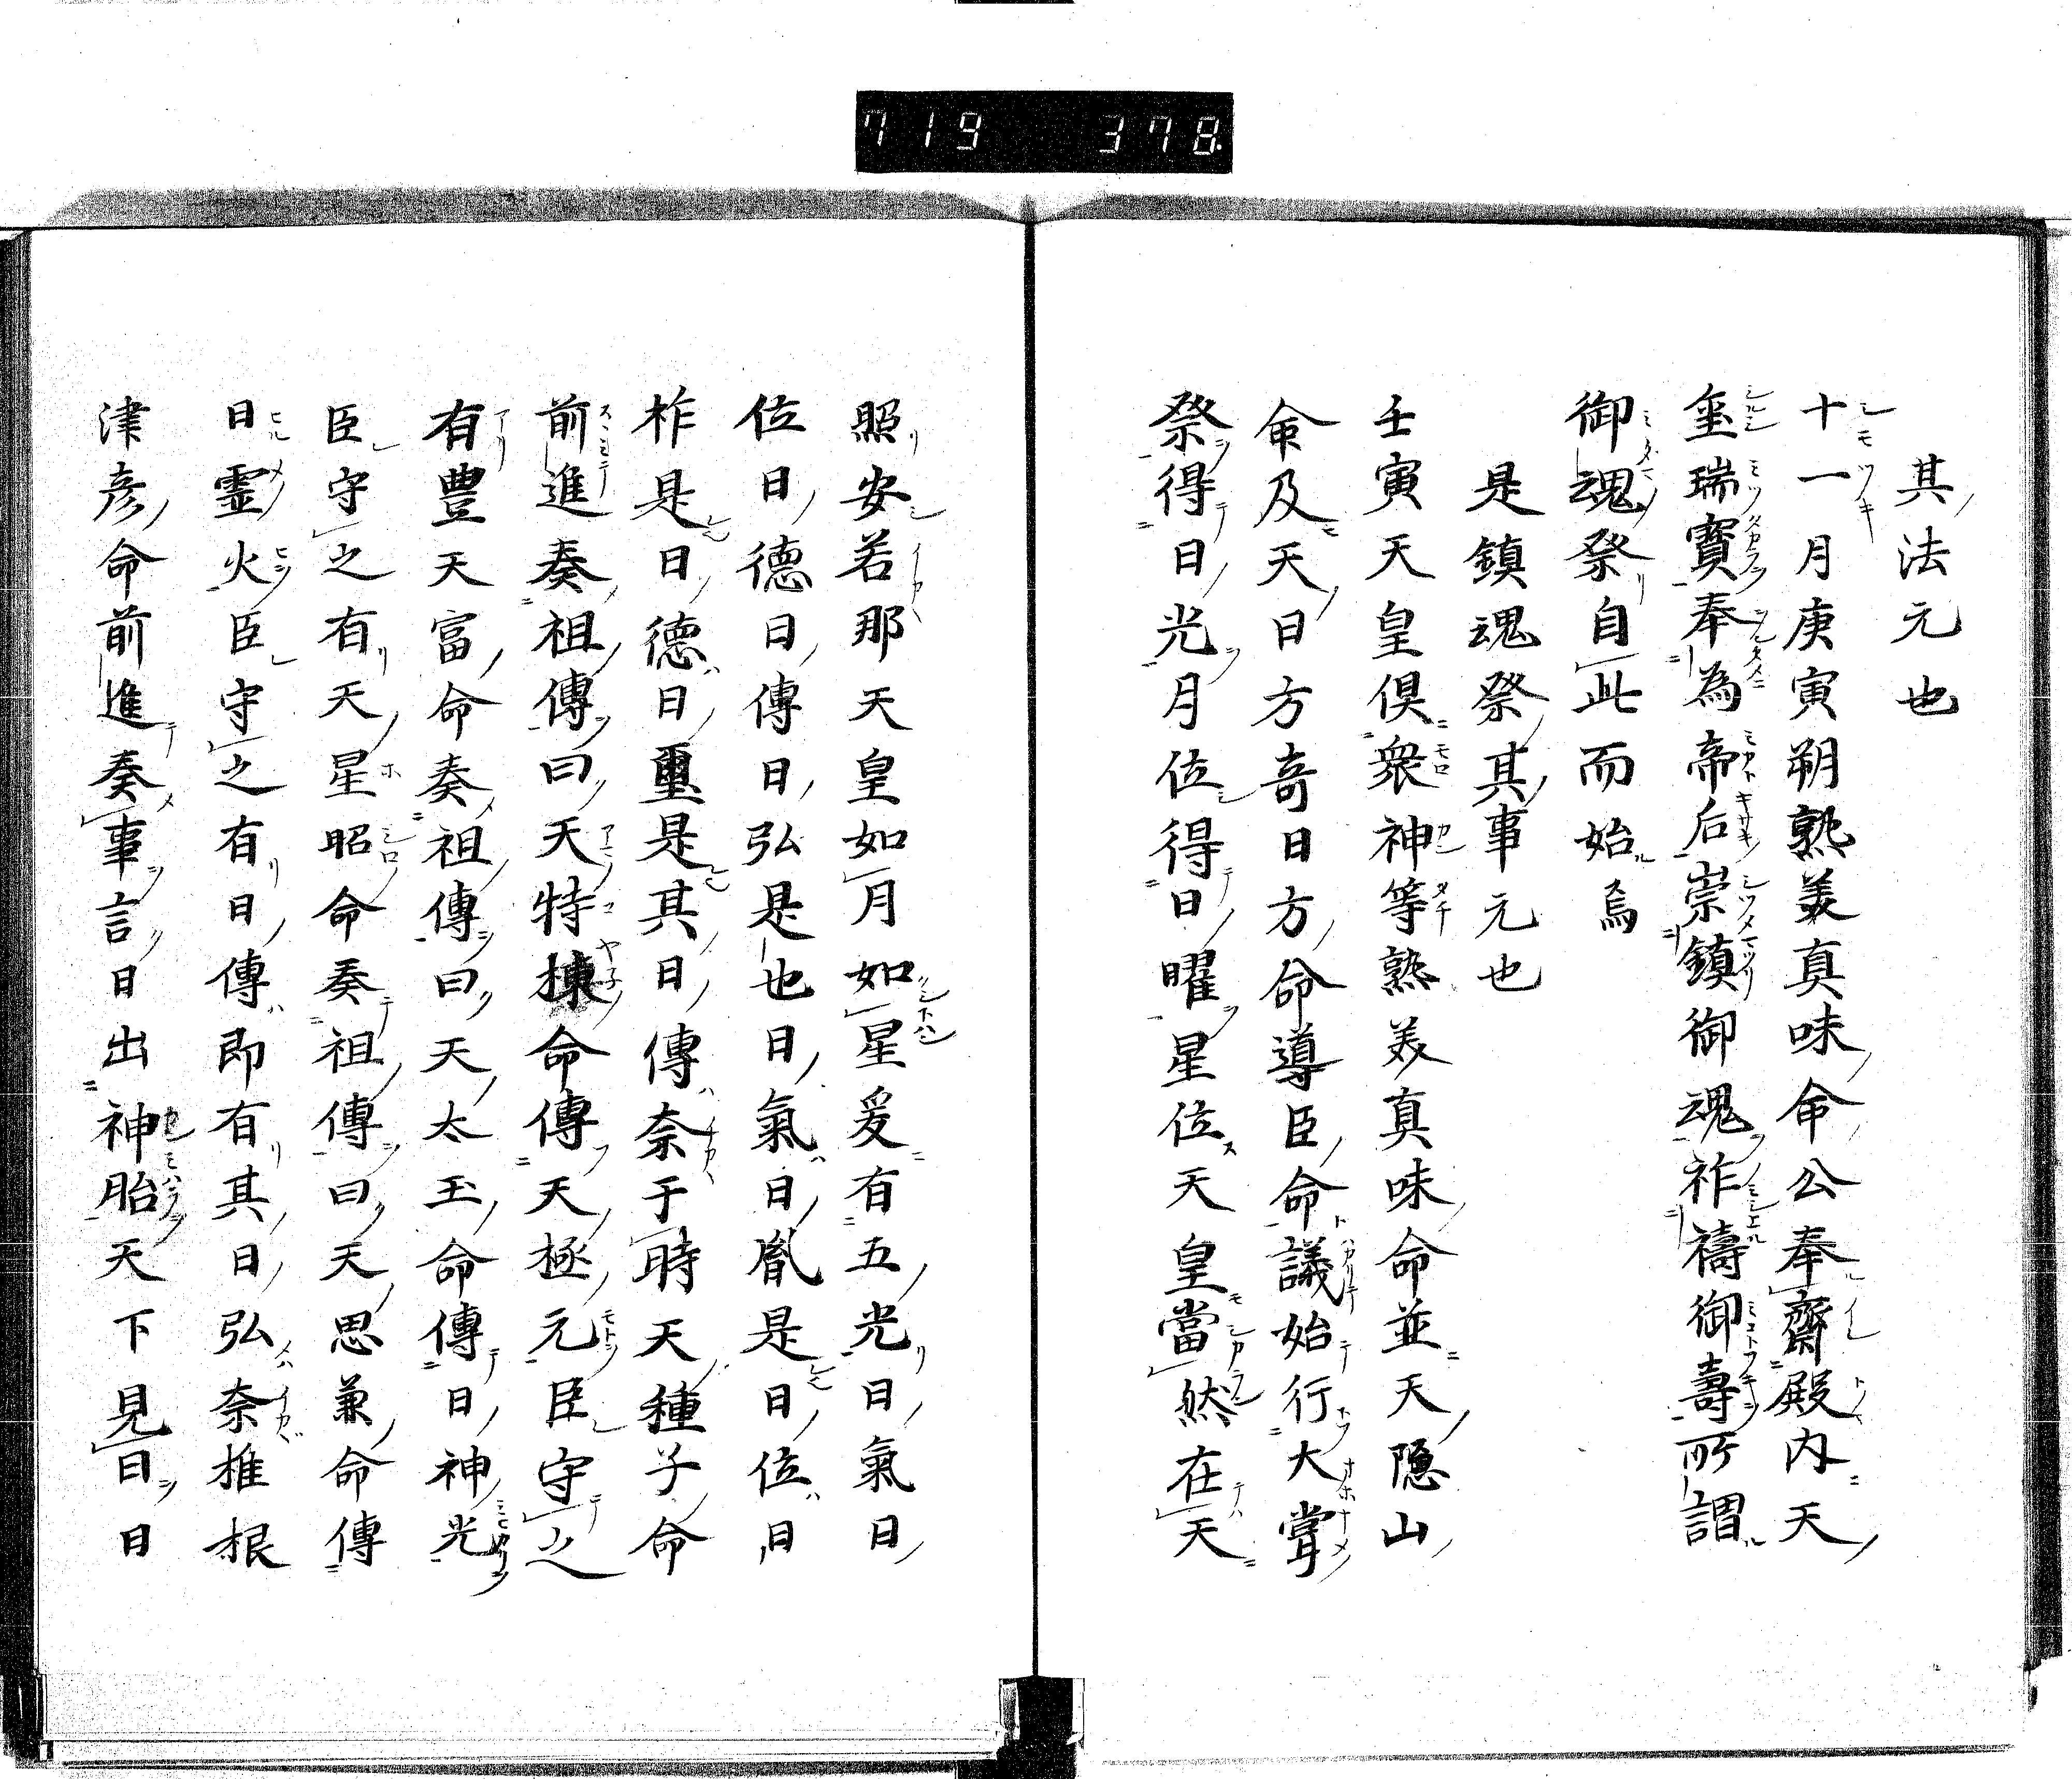 719 378
其法元也
十一月庚寅朔熟美真味命公奉齋殿内天
璽瑞寶奉為帝后崇鎮御魂祚禱御壽所謂
御魂祭自此而始焉
是鎮魂祭其事元也
壬寅天皇倶衆神等熟美真味命並天隠山
命及天日方奇日方命導臣命議始行大甞
祭得日光月位得日曜星位天皇當然在天
照安若那天皇如月如星爰有五光日氣日
位日德日傳日弘是也日氣日胤是日位日
柞是日德日璽是其日傳奈于時天種子命
前進奏祖傳曰天特棟命傳天極元臣守之
有豐天富命奏祖傳曰天太玉命傳日神光
臣守之有天星昭命奏祖傳曰天思兼命傳
日霊火臣守之有日傳即有其日弘奈推根
津彦命前進奏事言日出神胎天下見日日